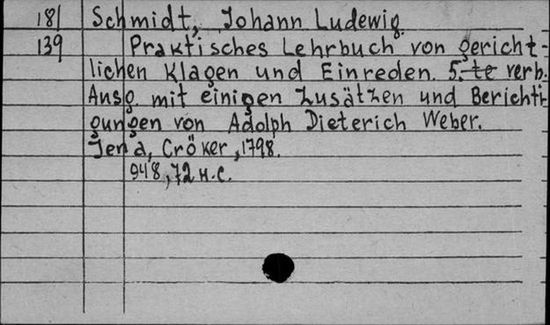 181 Schmidt, Johann Ludewig.
139 Praktisches Lehrbuch von gericht-
lichen Klagen und Einreden. 5.-te verb.
Ausg. mit einigen Zusätzen und Berichti-
gungen von Adolph Dieterich Weber.
Jena, Cröker, 1798.
948, 72 н.с.